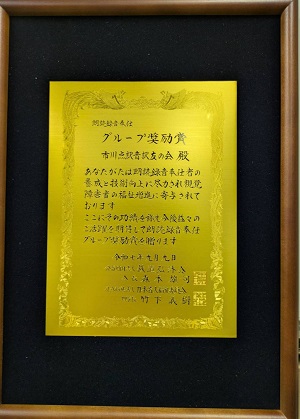 朗読録音奉仕
グループ奨励賞
市川点訳音訳友の会 殿
あなたがたは朗読録音奉仕者の
養成と技術向上に尽力され視覚
障害者の福祉増進に寄与されて
おります
ここにその功績を称え今後益々の
ご活躍を期待して朗読録音奉仕
グループ奨励賞を贈ります
九月九日
竹下義樹